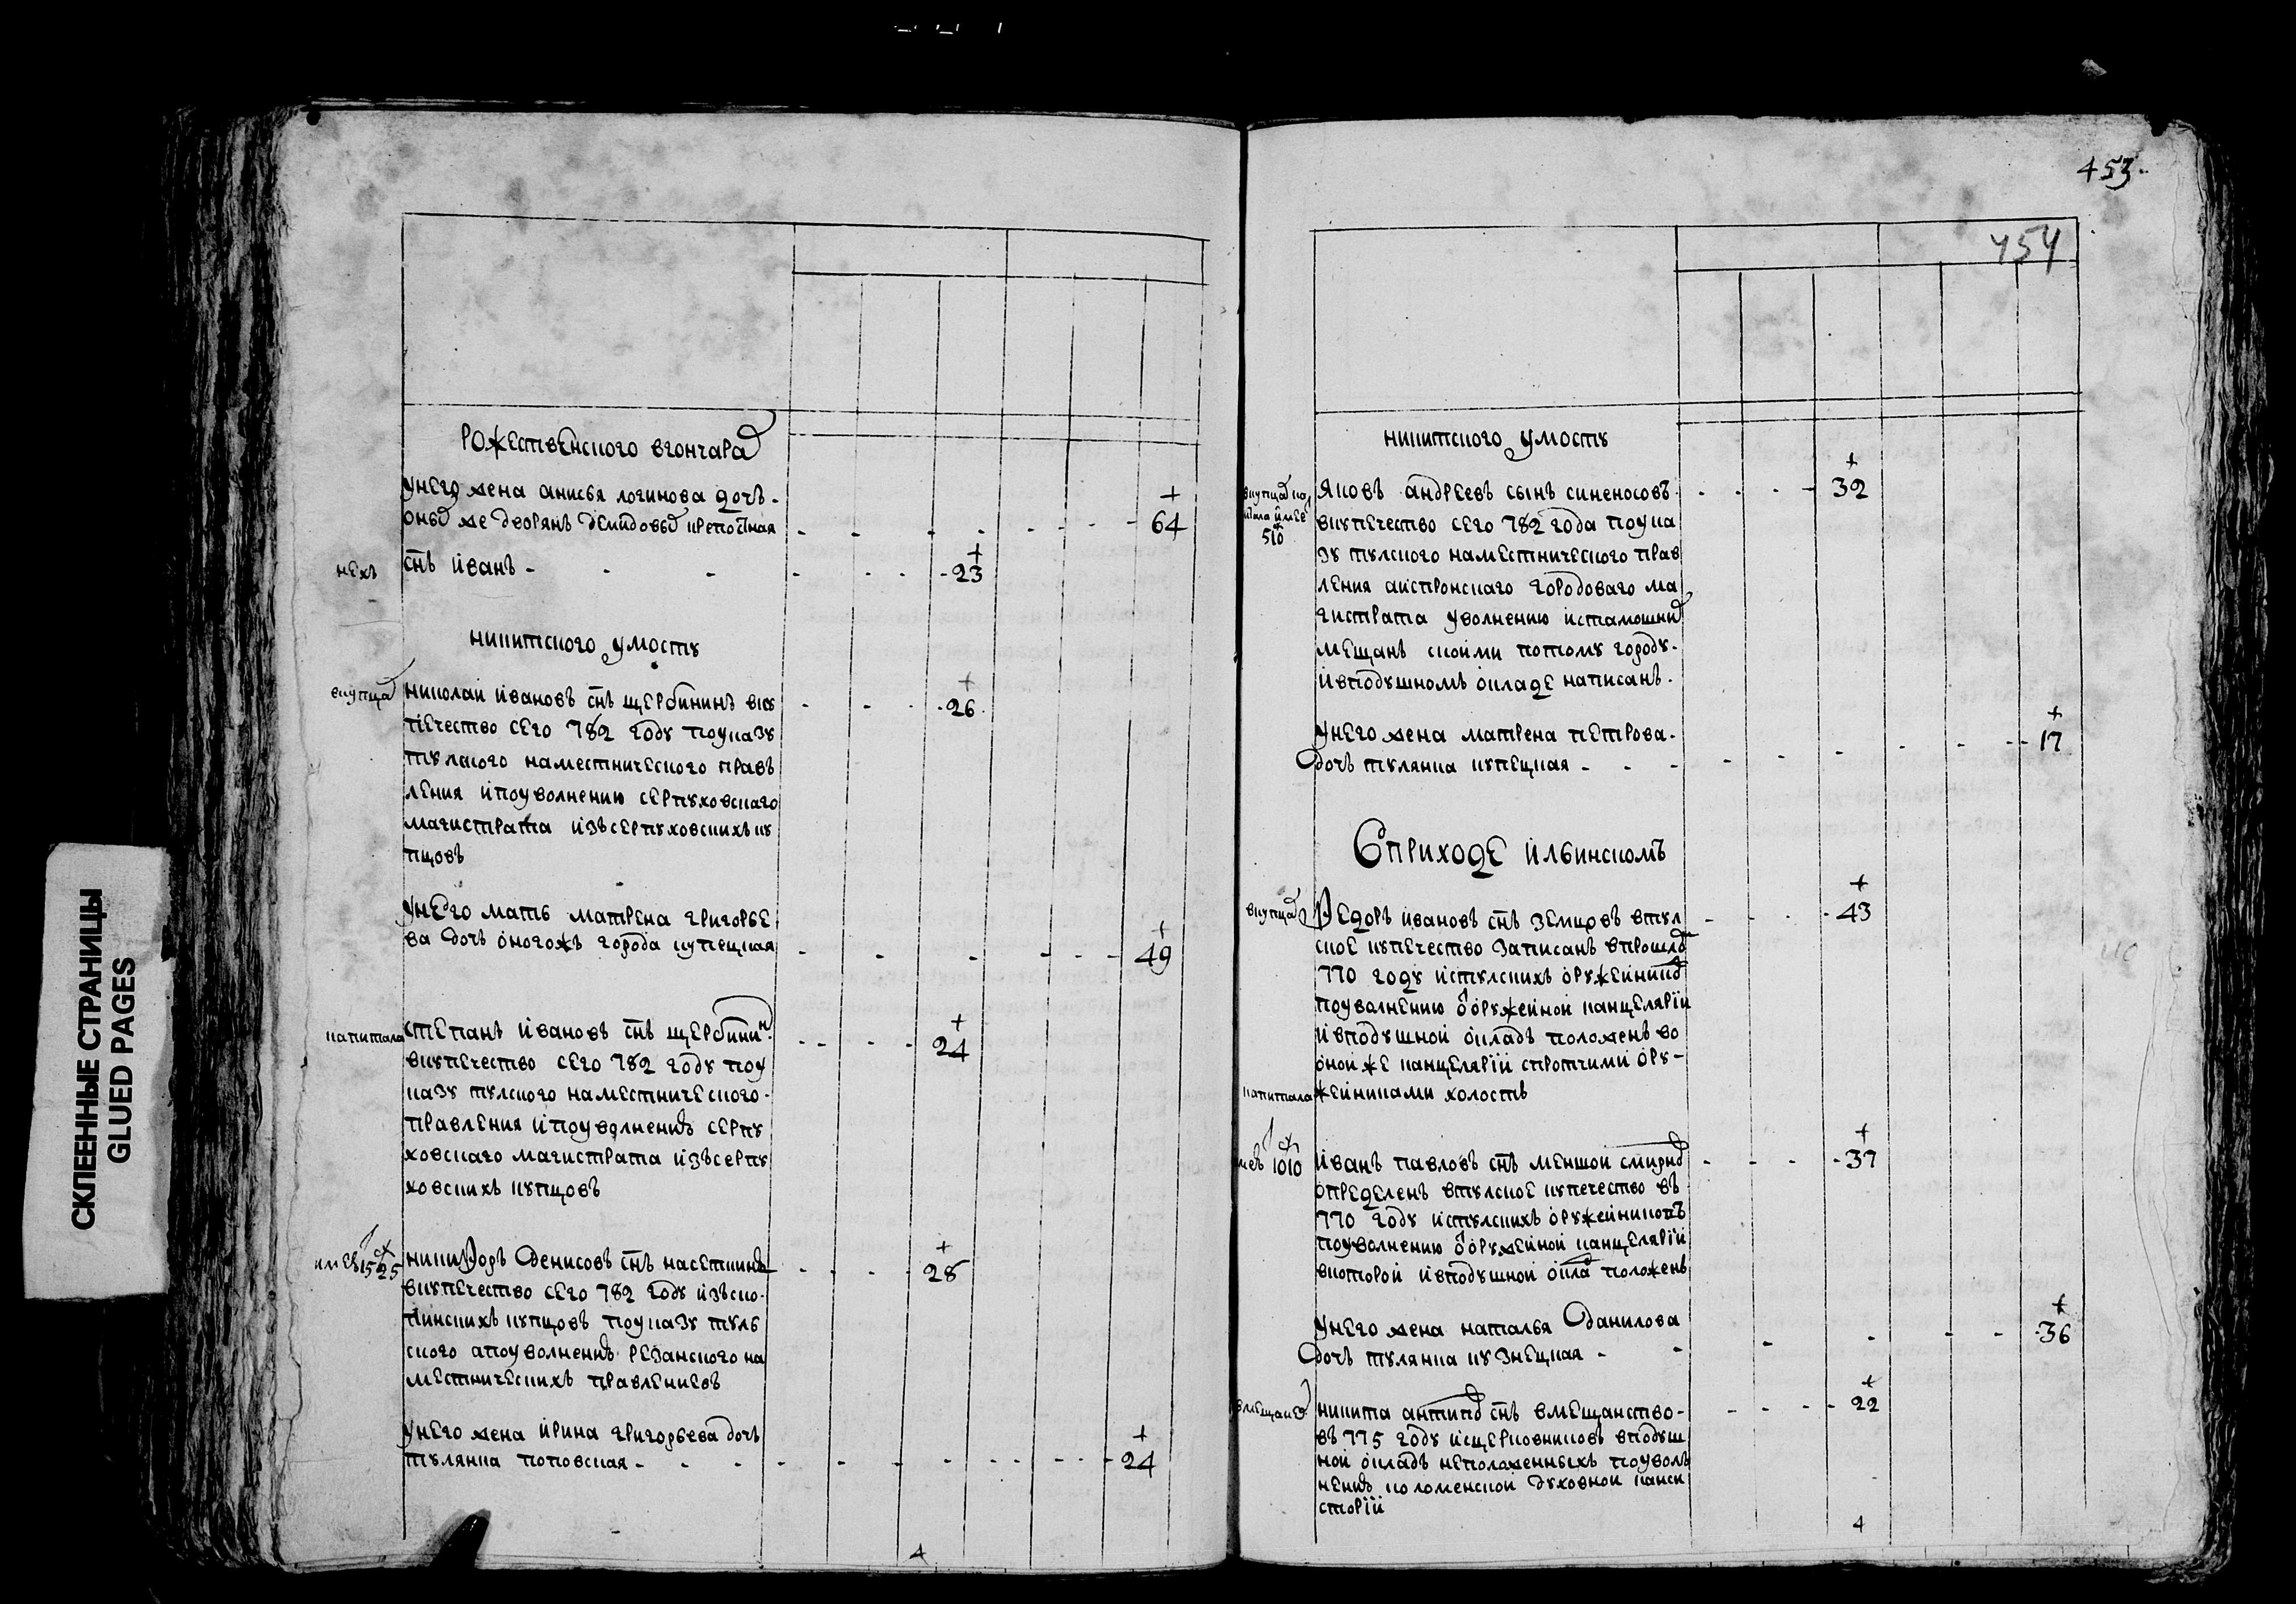 СКЛЕЕННЫЕ СТРАНИЦЫ
GLUED PAGES
рожественского вгончара
унего жена анисья логинова дочь
оных же дворян демидовых крепостная - 64
нехъ снъ иванъ - 23
никитского умосту
вкупца николаи ивановъ снъ щербининъ вку - 26
печество сего 782 году поуказу
тулского наместнического правъ
ления ипоуволнению серпуховскаго
магистрата изъсерпуховскихъ ку
пцовъ
унего мать матрена григорье
ва дочь оногожъ города купецкая - 49
капитала степанъ ивановъ снъ щербинин - 24
вкупечество сего 782 году поу
казу тулского наместнического
правления ипоуволнению серпу
ховскаго магистрата изъсерпу
ховскихъ купцовъ
имеет 1525 никифоръ денисовъ снъ - 28
вкупечество сего 782 году изъско
пинскихъ купцовъ поуказу туль
ского апоуволнению резанского на
местническихъ правлениевъ
унего жена ирина григорьева дочь
тулянка поповская - 24
4
453
454
никитского умосту
вкупца ка
питала имее
510
яковъ андреевъ сынъ синеносовъ - 32
вкупечество сего 782 года поука
зу тулского наместнического прав
ления городоваго ма
гистрата уволнению истамошних
мещанъ скоими потому городу
ивподушномъ окладе написанъ
унего жена матрена петрова - 17
дочь тулянка купецкая
Вприходе илвинскомъ
вкупца Федоръ ивановъ снъ земцовъ втул - 43
ское купечество записанъ впрошлом
770 году истулскихъ оружейников
поуволнению от оружейной канцелярии
ивподушной окладъ положенъ во
оной же канцелярии спротчими ору
капитала жейниками холостъ
имеет 1010 иванъ павловъ снъ меншой смирнов - 37
определенъ втулское купечество въ
770 году истулскихъ оружейниковъ
поуволнению от оружейной канцелярии
вкоторой ивподушной оклад положенъ
унего жена наталья данилова - 36
дочь тулянка кузнецкая
вмещане никита антипов снъ вмещанство - 22
въ 775 году исцерковниковъ вподуш
ной окладъ неположенныхъ поуволъ
нению коломенской духовной конси
стории
4